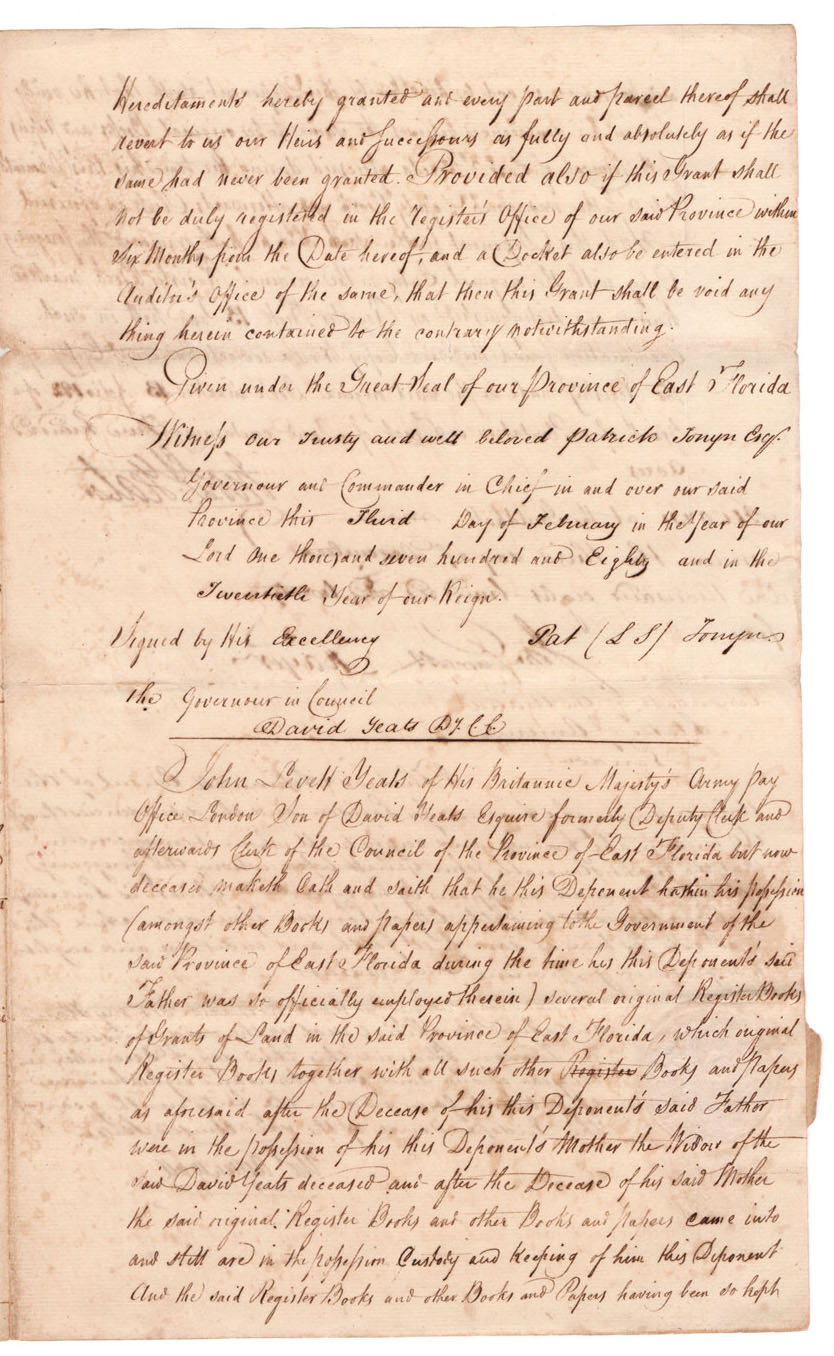 Hereditaments hereby granted and every part and parcel thereof shall
revert to us our Heirs and Successours as fully and absolutely as if the
same had never been granted. Provided also if this Grant shall
not be duly registered in the register's Office of our said Province within
Six Months from the Date hereof, and a Docket also be entered in the
Auditor's Office of the same, that then this Grant shall be void any
thing herein contained to the contrary notwithstanding.
Given under the Great Seal of our Province of East Florida
Witness our trusty and well beloved Patrick Tonyn Esqr.
Governour and Commander in Chief in and over our said
Province this Third Day of February in the Year of our
Lord One thousand seven hundred and Eighty and in the
Twentieth Year of our Reign.
Signed by His Excellency Pat (L S) Tonyn
the Governour in Council
David Yeats Dy. C. C.
John Levett Yeats of His Britannic Majesty's Army Pay
Office London Son of David Yeats Esquire formerly Deputy Clerk and
afterwards Clerk of the Council of the Province of East Florida but now
deceased maketh Oath and saith that he this Deponent hath in his possession
(amongst other Books and papers appertaining to the Government of the
said Province of East Florida during the time his this Deponent's said
Father was so officially employed therein) several original Register Books
of Grants of Land in the said Province of East Florida, which original
Register Books together with all such other Register Books and papers
as aforesaid after the Decease of his this Deponent's said Father
were in the possession of his this Deponent's Mother the Widow of the
said David Yeats deceased and after the Decease of his said Mother
the said original Register Books and other Books and papers came into
and still are in the possession Custody and Keeping of him this Deponent
And the said Register Books and other Books and Papers having been so kept